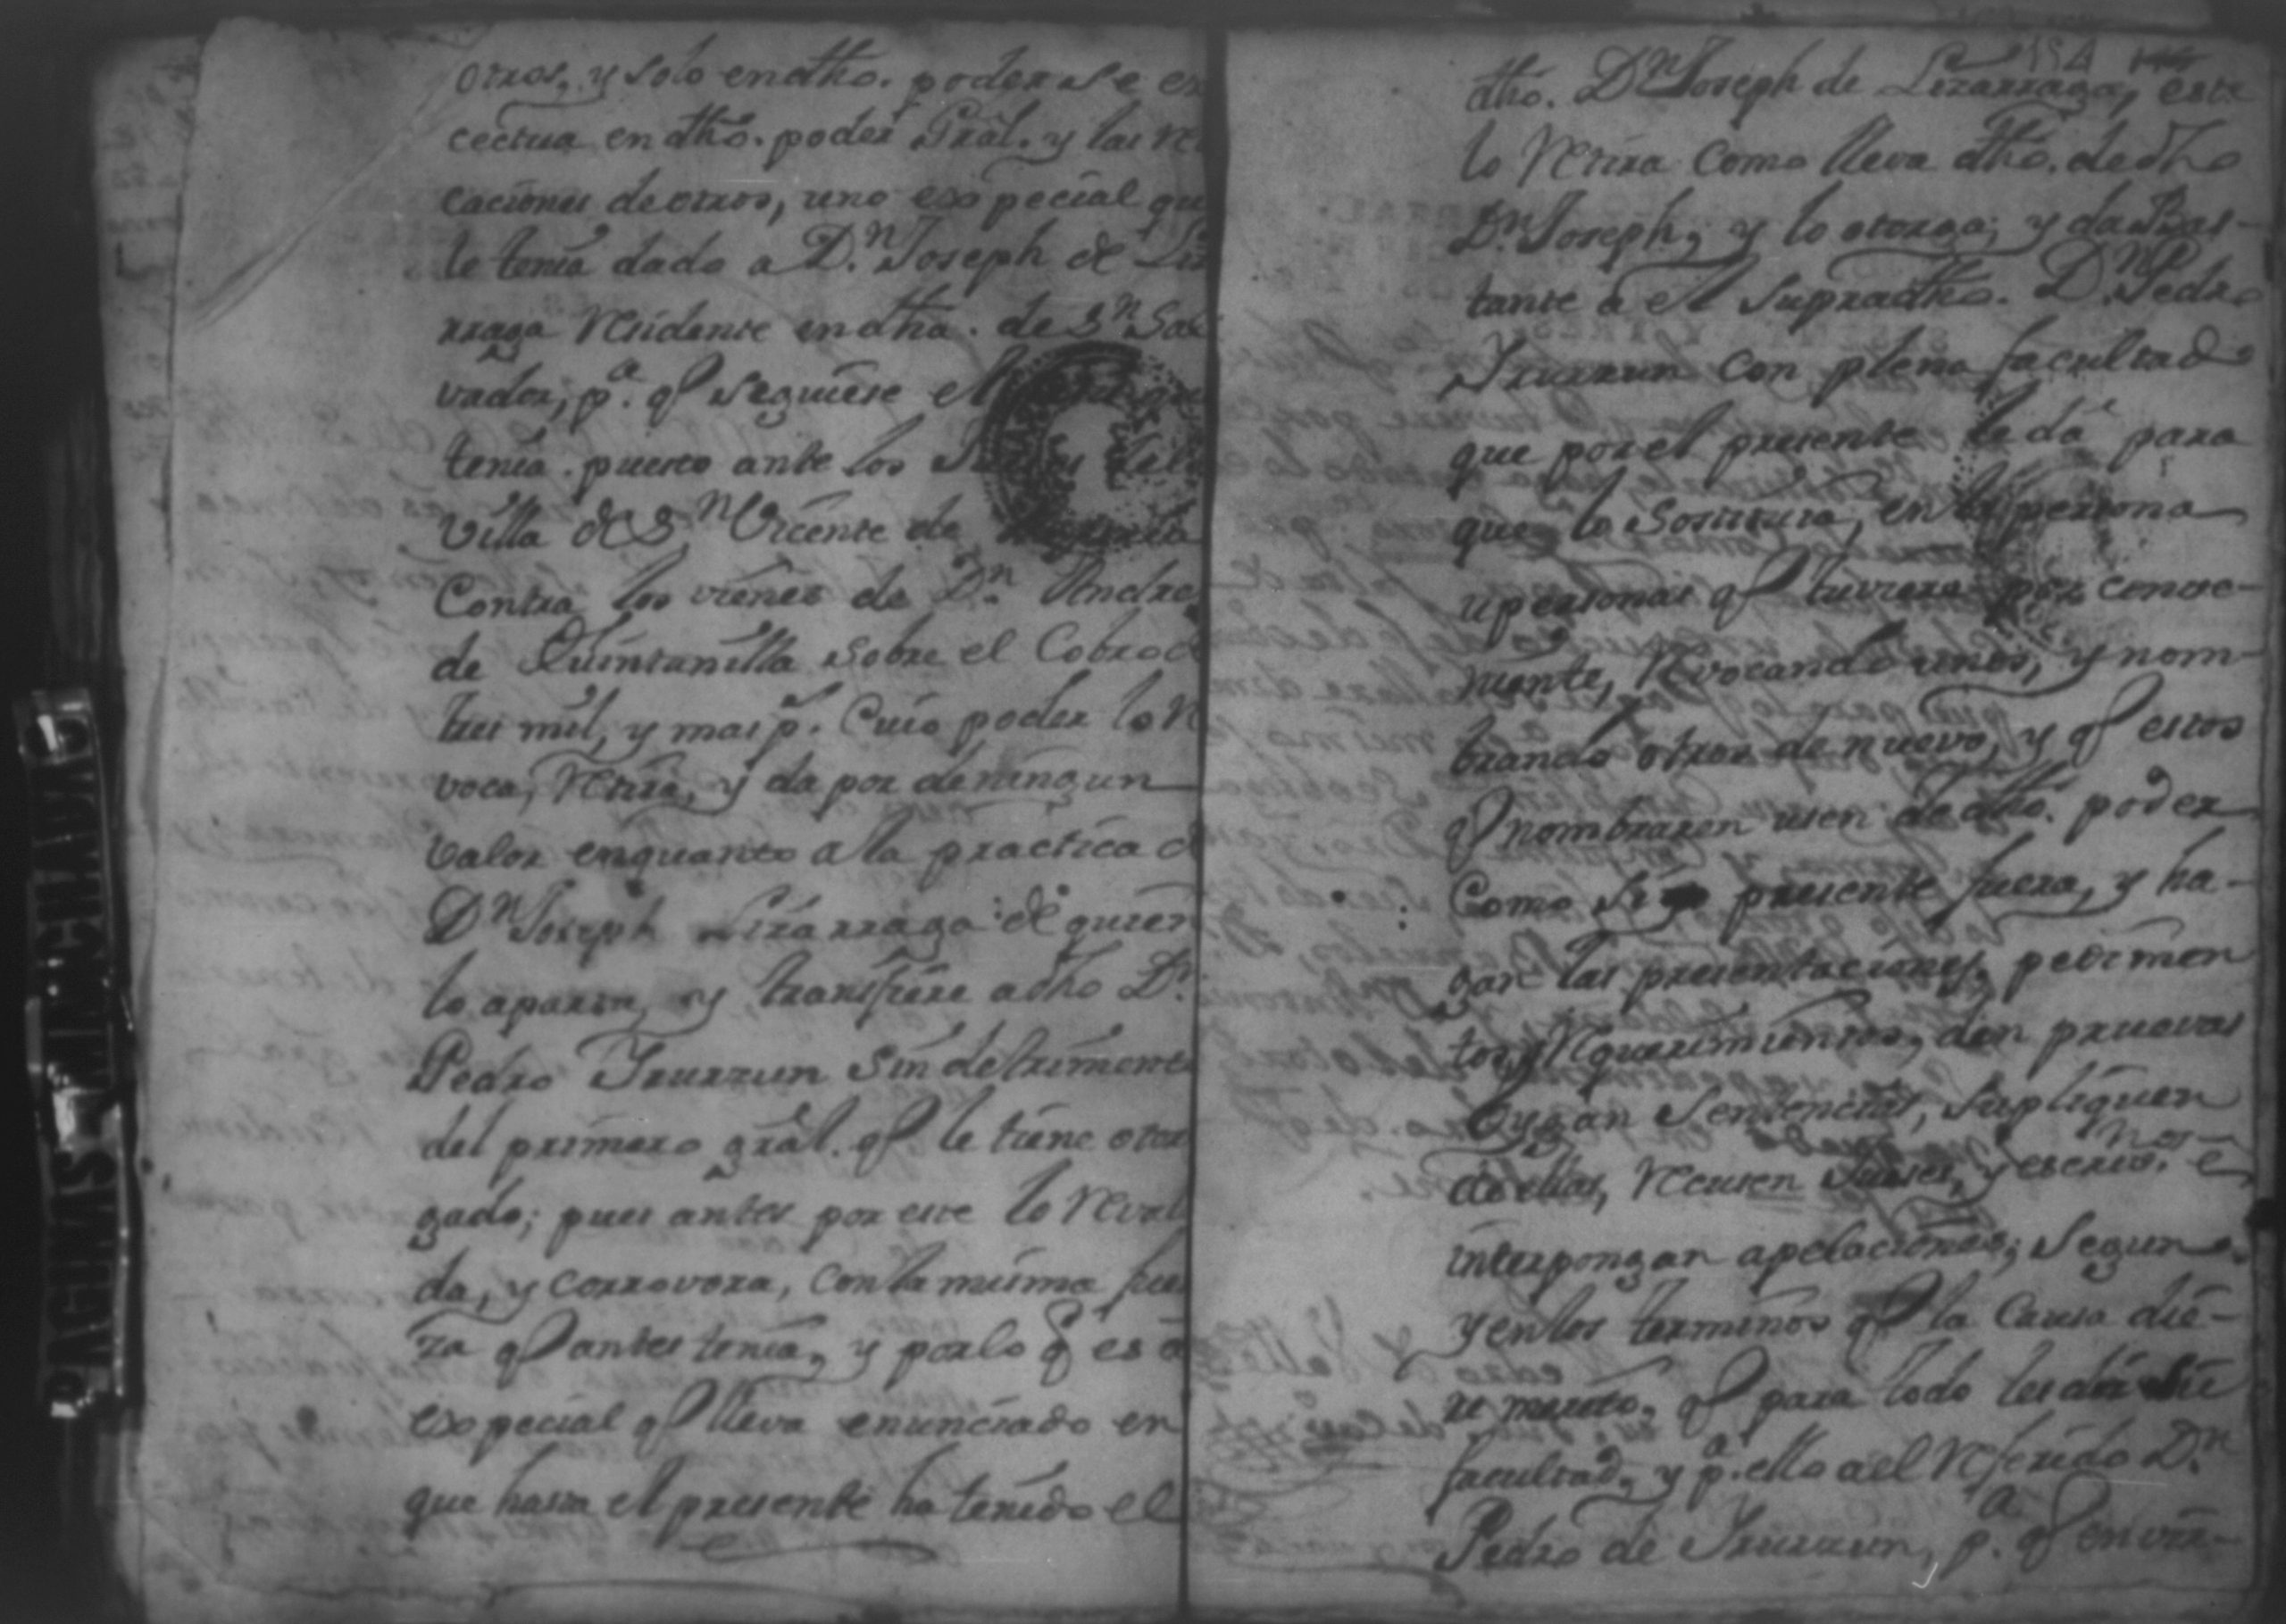 otros, y solo en dho. poder se ex
cectua en dho. poder Gral. y las re
caciones de otros, uno expecial qu
le tenia dado a Dn. Joseph de Liz
rraga Residente en dha. de Sn. Sal
vador, pa. q seguiere el
tenia puesto ante los
Villa de Sn. Vicente de
Contra los vienes de Dn. Andre
de Quintanilla sobre el Cobro d
tres mil, y mas ps. Cuio poder lo re
voca, retira, y da por de ningun
valor en quanto a la practica d
Dn. Joseph Lizarraga de quien
lo aparta, y transfiere a dho Dn.
Pedro Irurzun sin detrimento
del primero gral. q le tiene otor
gado; pues antes por este lo reval
da, y corrovora, con la misma fue
rza q antes tenia, y por lo q es a
expecial q lleva enunciado en
que hasta el presente ha tenido el
154
dho. Dn. Joseph de Lizarraga, este
lo retira como lleva dho. de dho
Dn. Joseph, y lo otorga, y da Bas-
tante â el Supradho. Dn. Pedro
Irurzun con plena facultad
que por el presente le dâ para
que lo sostituia, en la persona
u personas q tuviere por conve-
niente, revocando unos, y nom-
brando otros de nuevo, y q estos
q nombraren usen de dho. poder
Como si presente fuera, y ha-
gan las presentaciones, pedimen
tos, y requerimientos, den pruevas
Oygan Sentencias, supliquen
de ellas, recusen Jueses, y escrivnos. e
interpongan apelaciones; segun
y en los terminos q la Causa die-
re merito, q para todo les da su
facultad, y pa. ello a el referido Dn.
Pedro de Irurzun, pa. q en vir-
ARCHIVO
AGI